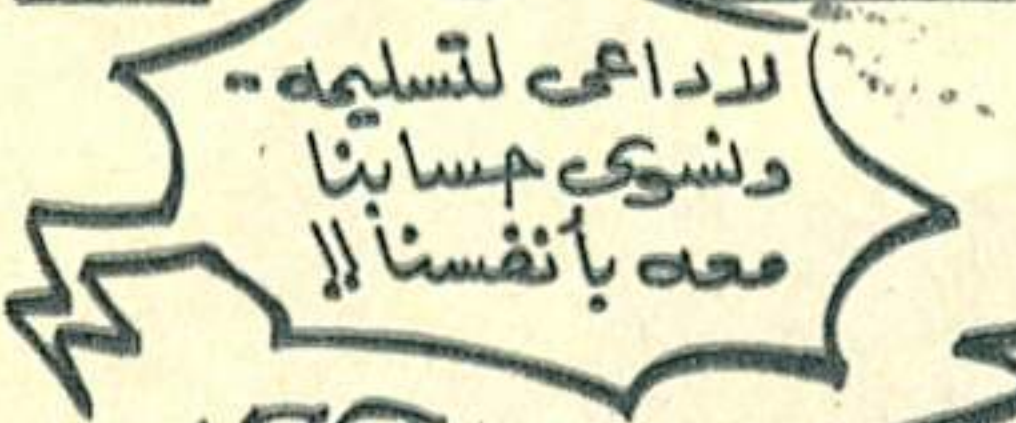 لا داعى لتسليمه ..
ونسوى حسابنا
معه بأنفسنا !!